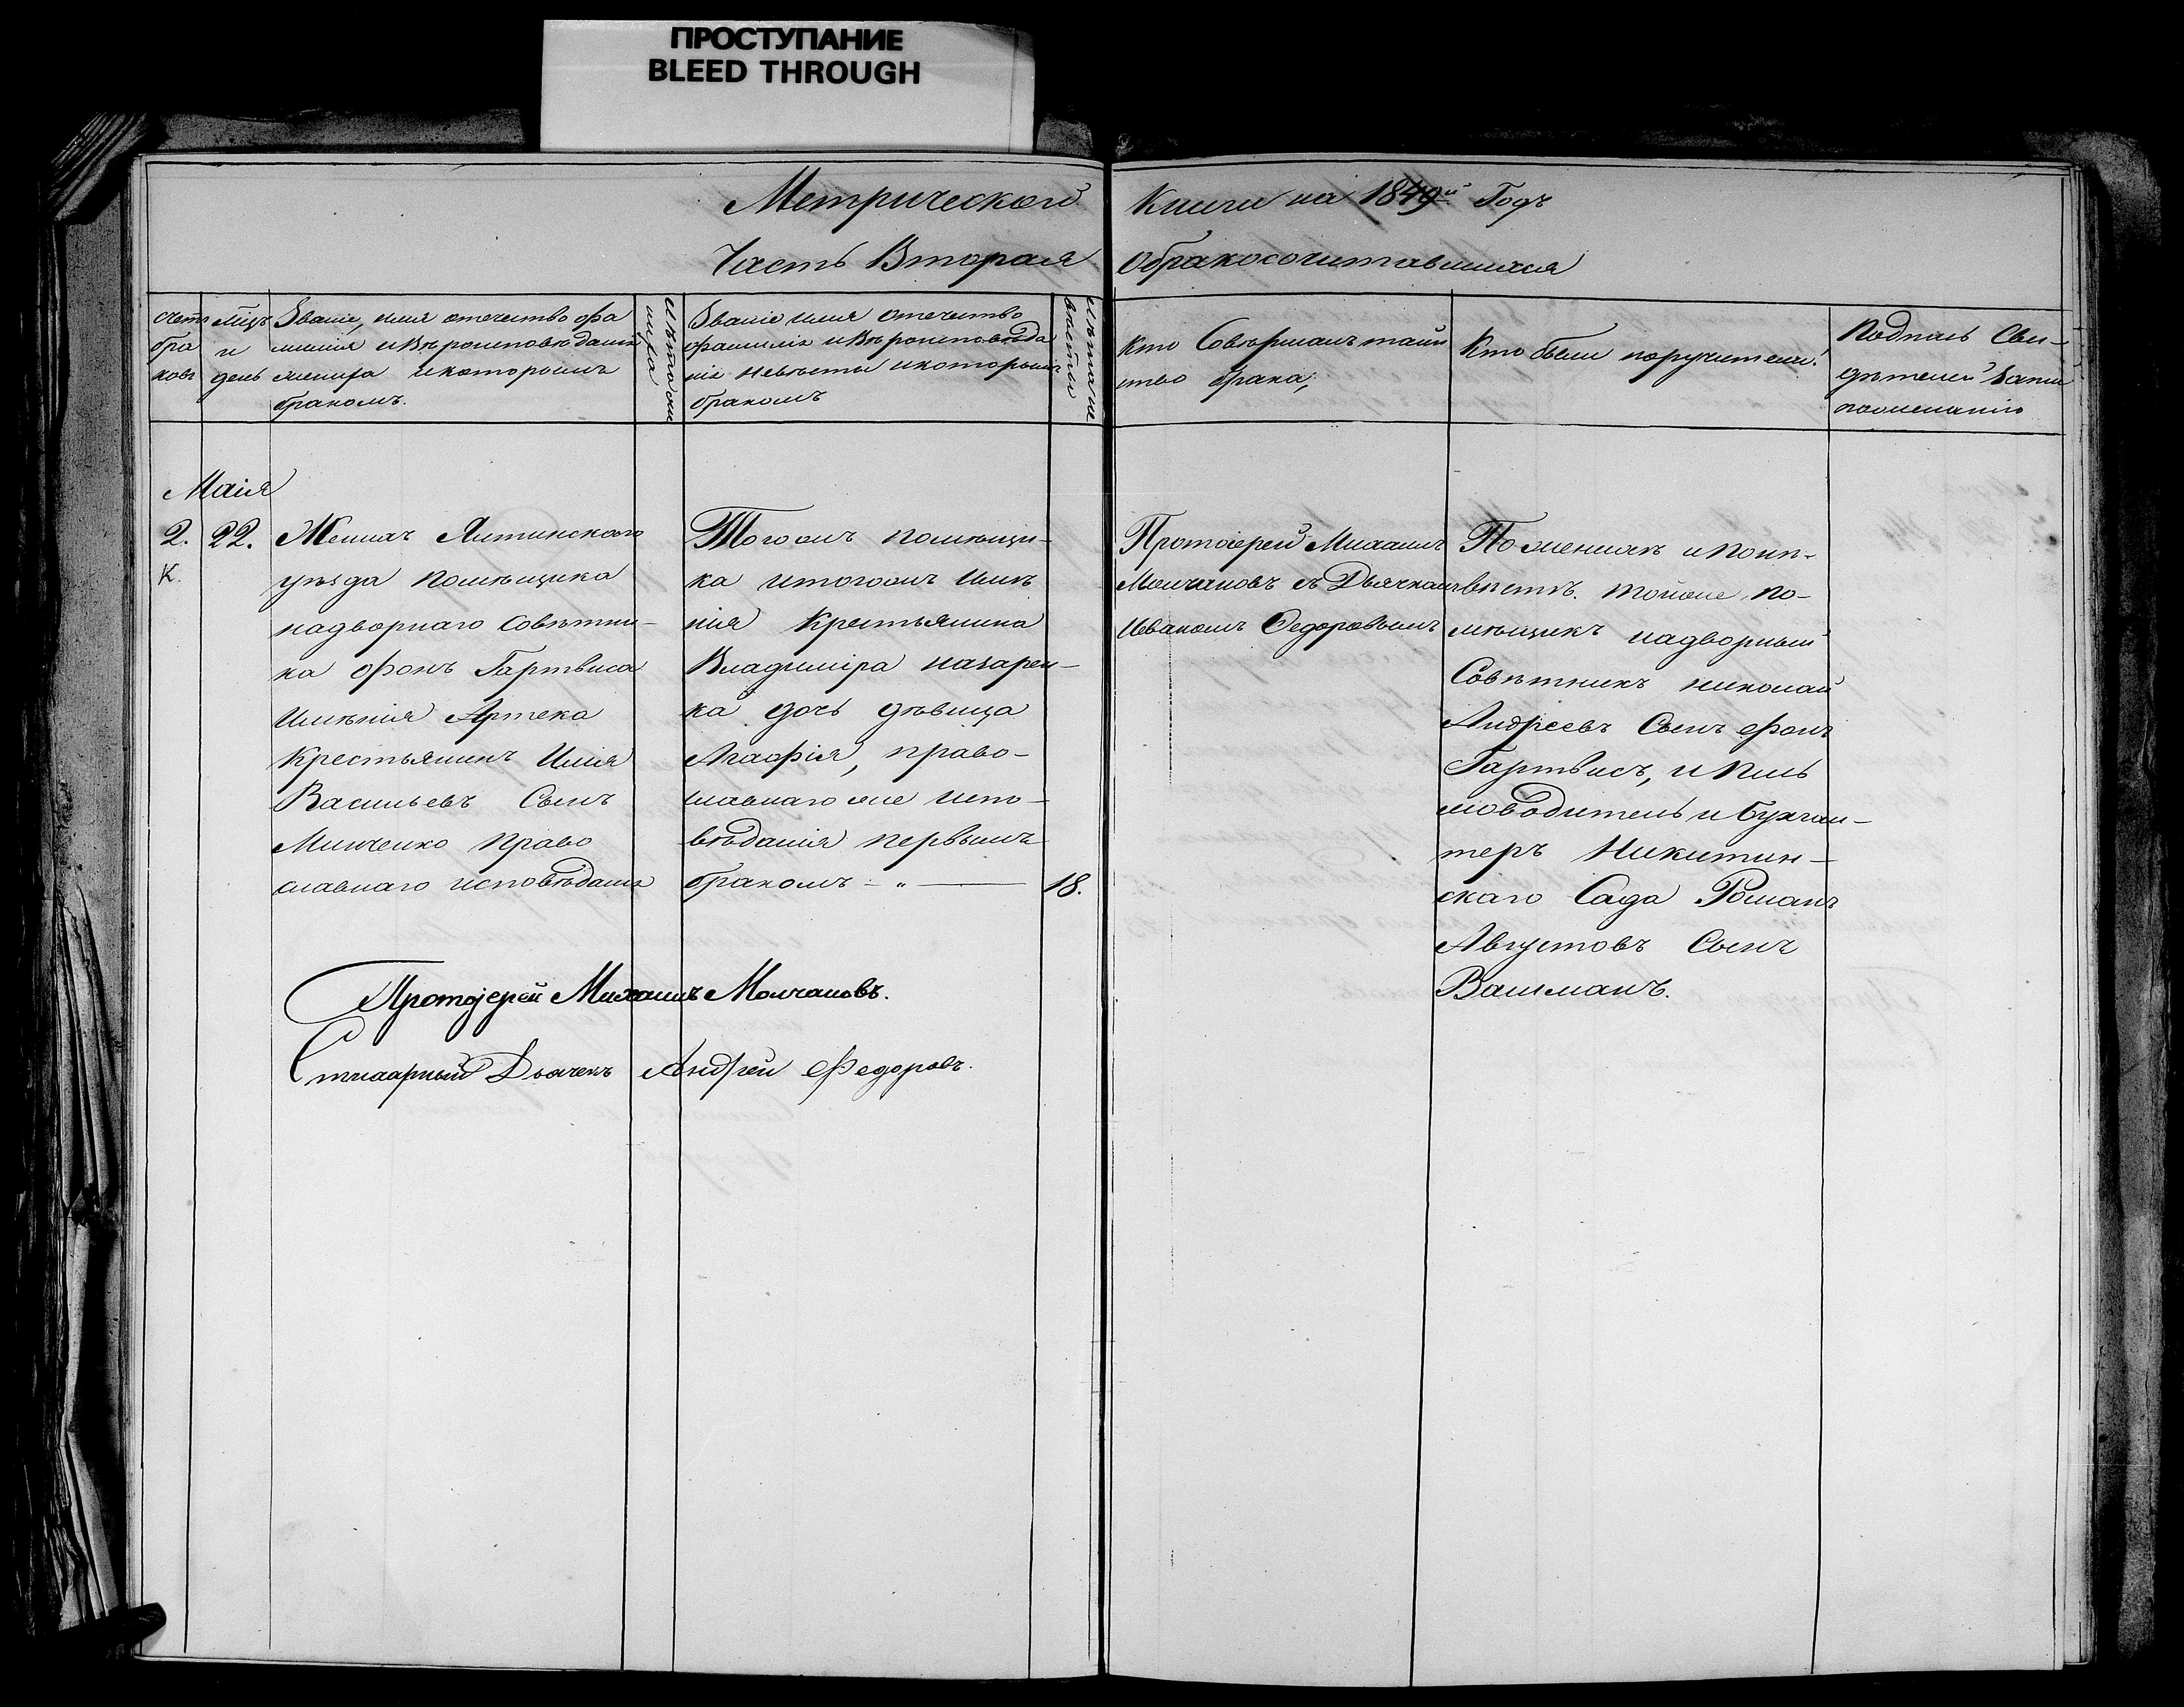 ПРОСТУПАНИЕ
BLEED THROUGH
Метрической Книги на 1849й Годъ
Часть Вторая О бракосочитавшихся
Счетъ бра ковъ
Мцъ и день
Званіе, имя отечество фа
милія и Вѣроисповѣданіе
жениха и которымъ
бракомъ.
Лѣта же
ниха
Званіе имя Отечество
фамиліе и Вѣроисповѣда
ніе невѣсты и которымъ
бракомъ
Лѣта не
вѣсты
Кто Совершалъ таин
ство брака,
Кто были поручители.
Подпись Сви-
дѣтелей Запи
по желанію
Маія
2.
К.
22.
Женихъ Ялтинского
уѣзда помѣщика
надворнаго Совѣтни-
ка фонъ Гартвиса
Имѣнія Артека
Крестьянинъ Илія
Васильевъ Сынъ
Минченко право
славнаго исповѣданія
Тогожъ помѣщи-
ка итогожъ Имѣ
нія Крестьянина
Владиміра назарен-
ка дочь дѣвица
Агафія, право-
славнаго же испо-
вѣданія первымъ
бракомъ - „ -
18.
Протоіерей Михаилъ
Молчановъ съ Дьячкомъ
Иваномъ Федоровымъ
По женихѣ и по не-
вѣстѣ. тойже по-
мѣщикъ надворный
Совѣтникъ николай
Андреевъ Сынъ фонъ
Гартвисъ, и пись
моводитель и бухгал-
теръ Никитин-
скаго Сада Романъ
Августовъ Сынъ
Протоіерей Михаилъ Молчановъ.
Стихарный Дьячекъ Андрей Федоровъ.